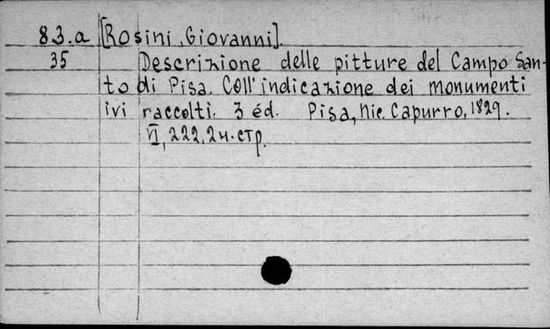 83.a [Rosini, Giovanni].
35 Descrizione delle pitture del Campo San-
to di Pisa. Coll'indicazione dei monumenti
ivi raccolti. 3 éd. Pisa, Nic. Capurro, 1829.
VI, 222, 2н.стр.